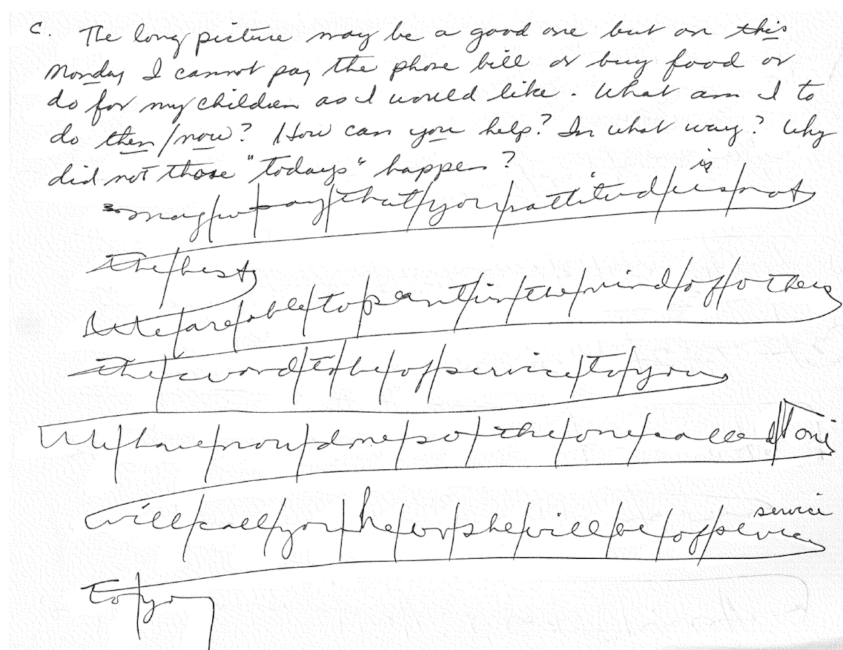 c. The long picture may be a good one but on this
Monday I cannot pay the phone bill or buy food or
do for my children as I would like. What am I to
do then/now? How can you help? In what way? Why
did not those "todays" happen?
may/w/say/that/your/attitud/is/not
is
the/best
We/are/able/to/plant/in/the/mind/of/others
the/word/to/be/of/service/to/you
We/have/now/done/so/the/one/called/Toni
will/call/you/he/or/she/will/be/of/service
service
to/you